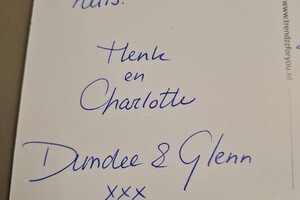 huis.
Henk
en
Charlotte
Dundee & Glenn
xxx
www.trendzforyou.nl